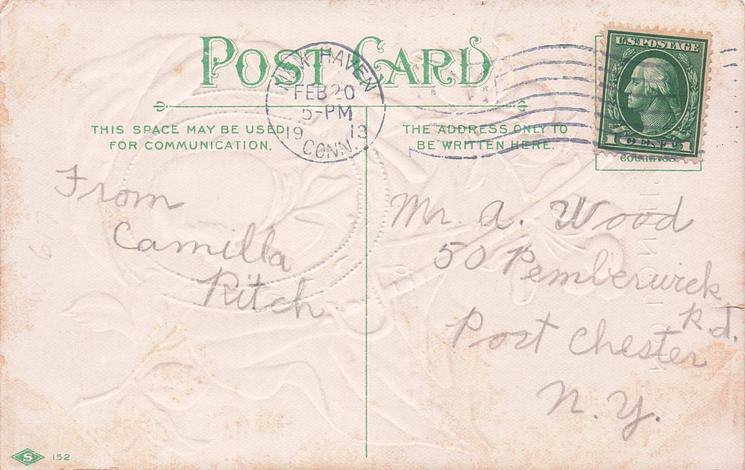 POST CARD
NEW HAVEN
FEB 20
5-PM
19 13
CONN.
U.S. POSTAGE
1 CENT 1
THIS SPACE MAY BE USED
FOR COMMUNICATION.
THE ADDRESS ONLY TO
BE WRITTEN HERE.
From
Camilla
Ritch
Mr. A. Wood
50 Pemberwick
Rd.
Port Chester
N.Y.
S 152